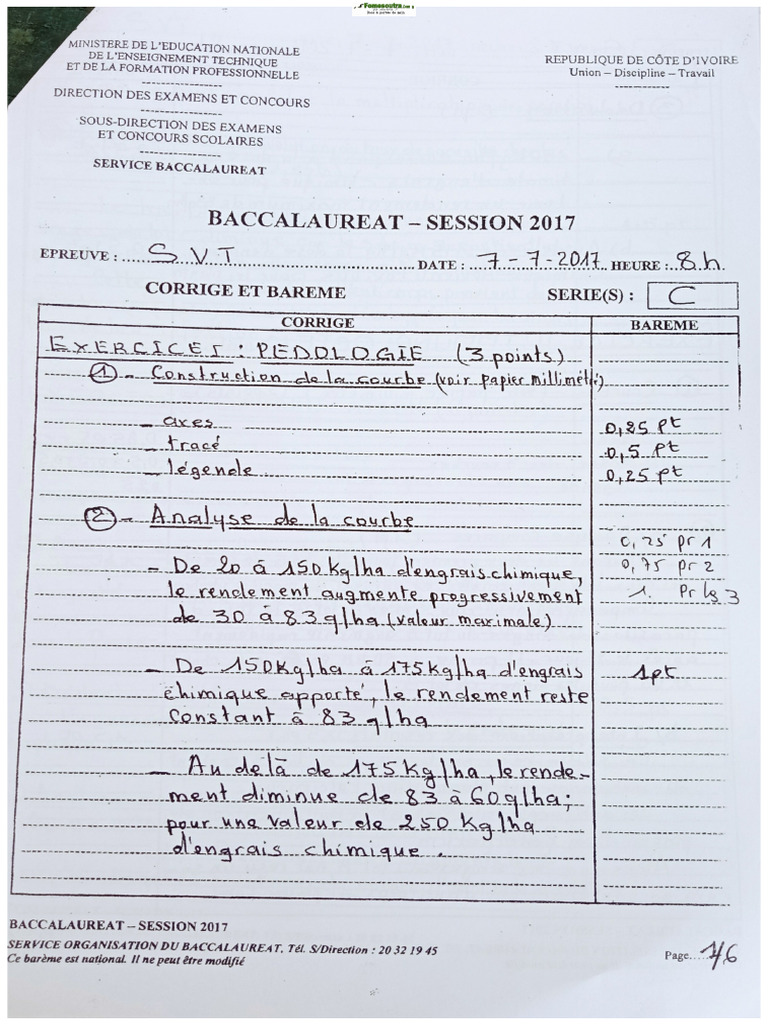 Fomesoutra.com
MINISTERE DE L'EDUCATION NATIONALE
DE L'ENSEIGNEMENT TECHNIQUE
ET DE LA FORMATION PROFESSIONNELLE
DIRECTION DES EXAMENS ET CONCOURS
SOUS-DIRECTION DES EXAMENS
ET CONCOURS SCOLAIRES
SERVICE BACCALAUREAT
REPUBLIQUE DE CÔTE D'IVOIRE
Union – Discipline – Travail
BACCALAUREAT – SESSION 2017
EPREUVE : S.V.T DATE : 7-7-2017 HEURE : 8h
CORRIGE ET BAREME SERIE(S) : C
CORRIGE BAREME
EXERCICE 1 : PEDOLOGIE (3 points)
① - Construction de la courbe (voir papier millimétré)
- axes 0,25 pt
- tracé 0,5 pt
- légende 0,25 pt
② - Analyse de la courbe
0,25 pr 1
- De 20 à 150 Kg/ha d'engrais chimique, 0,75 pr 2
le rendement augmente progressivement 1. Pr les 3
de 30 à 83 q/ha (valeur maximale)
- De 150Kg/ha à 175Kg/ha d'engrais 1pt
chimique apporté, le rendement reste
constant à 83 q/ha
- Au delà de 175 Kg/ha, le rende-
ment diminue de 83 à 60 q/ha ;
pour une valeur de 250 Kg/ha
d'engrais chimique.
BACCALAUREAT – SESSION 2017
SERVICE ORGANISATION DU BACCALAUREAT, Tél. S/Direction : 20 32 19 45
Ce barème est national. Il ne peut être modifié
Page.....1/6